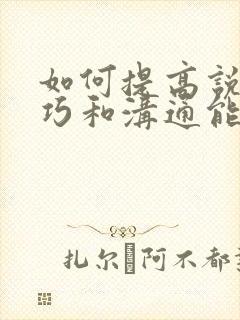 如何提高說
巧和溝通能
扎尔 阿不都